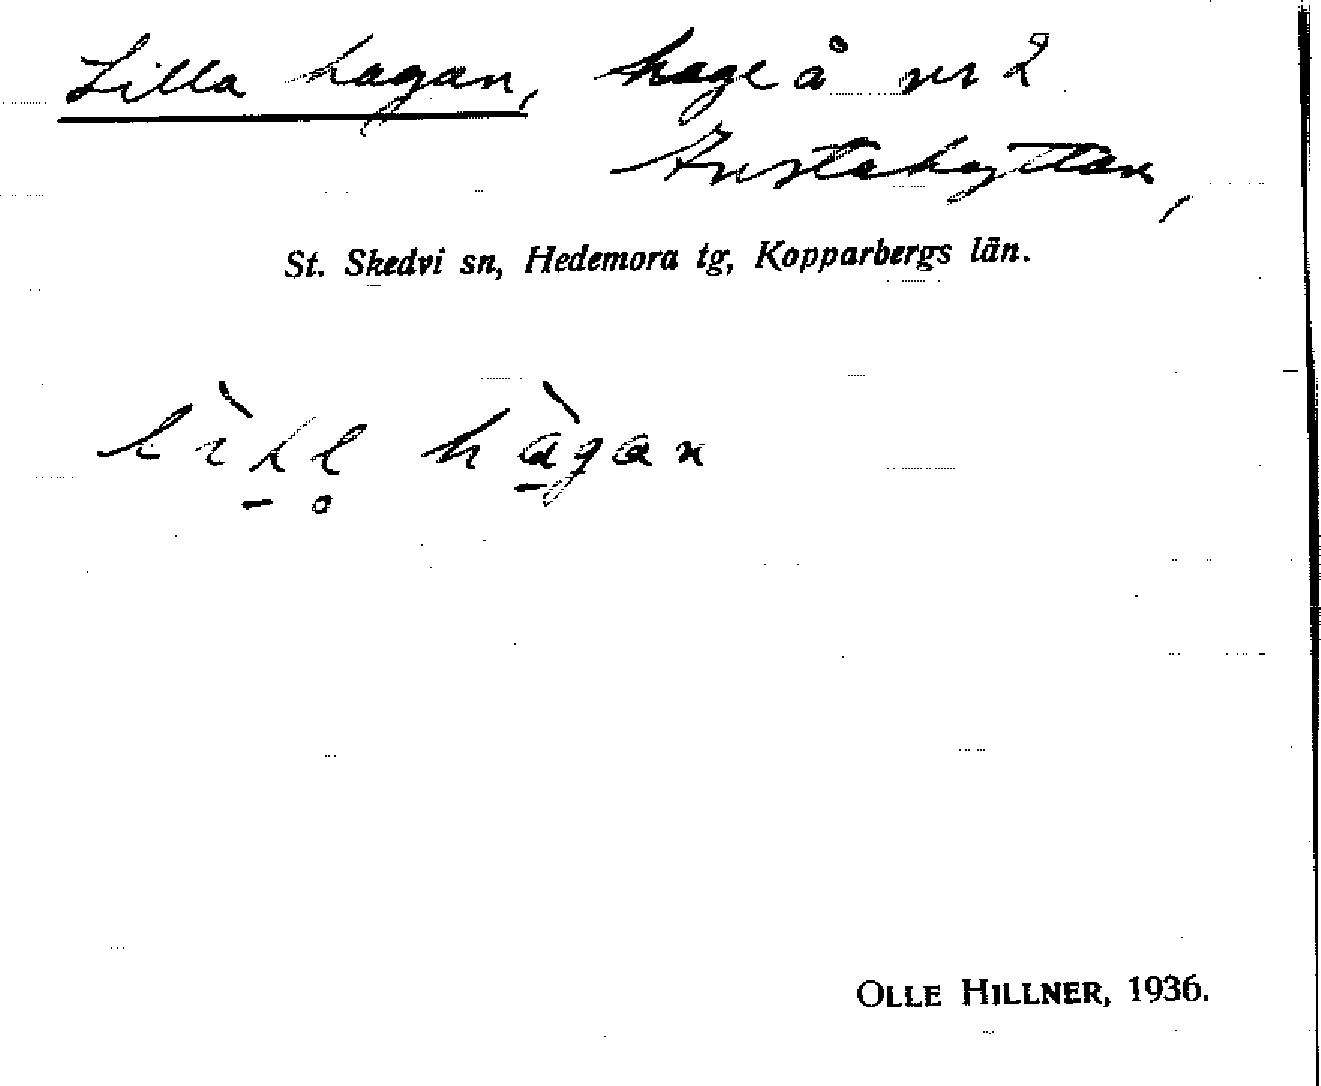 Lilla hagan, hage å nr 2
Gustahyttan,
St. Skedvi sn, Hedemora tg, Kopparbergs län.
hàgan
OLLE HILLNER, 1936.